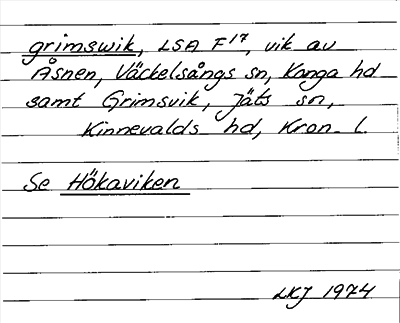 grimswik, LSA F17, vik av
Åsnen, Väckelsångs sn, Konga hd
samt Grimsvik, Jäts sn,
Kinnevalds hd, Kron. l.
Se Hökaviken
LKJ 1974